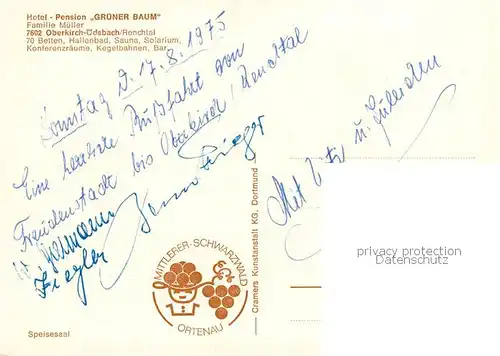 Hotel - Pension „GRÜNER BAUM"
Familie Müller
7602 Oberkirch-Ödsbach/Renchtal
70 Betten, Hallenbad, Sauna, Solarium,
Konferenzräume, Kegelbahnen, Bar
Sonntag D. 17.8.1975
Eine herrliche Bußfahrt von
Freudenstadt bis Oberkirch/Renchtal
Ziegler
Mit u.
MITTLERER-SCHWARZWALD
ORTENAU
Cramers Kunstanstalt KG, Dortmund
privacy protection
Datenschutz
Speisesaal